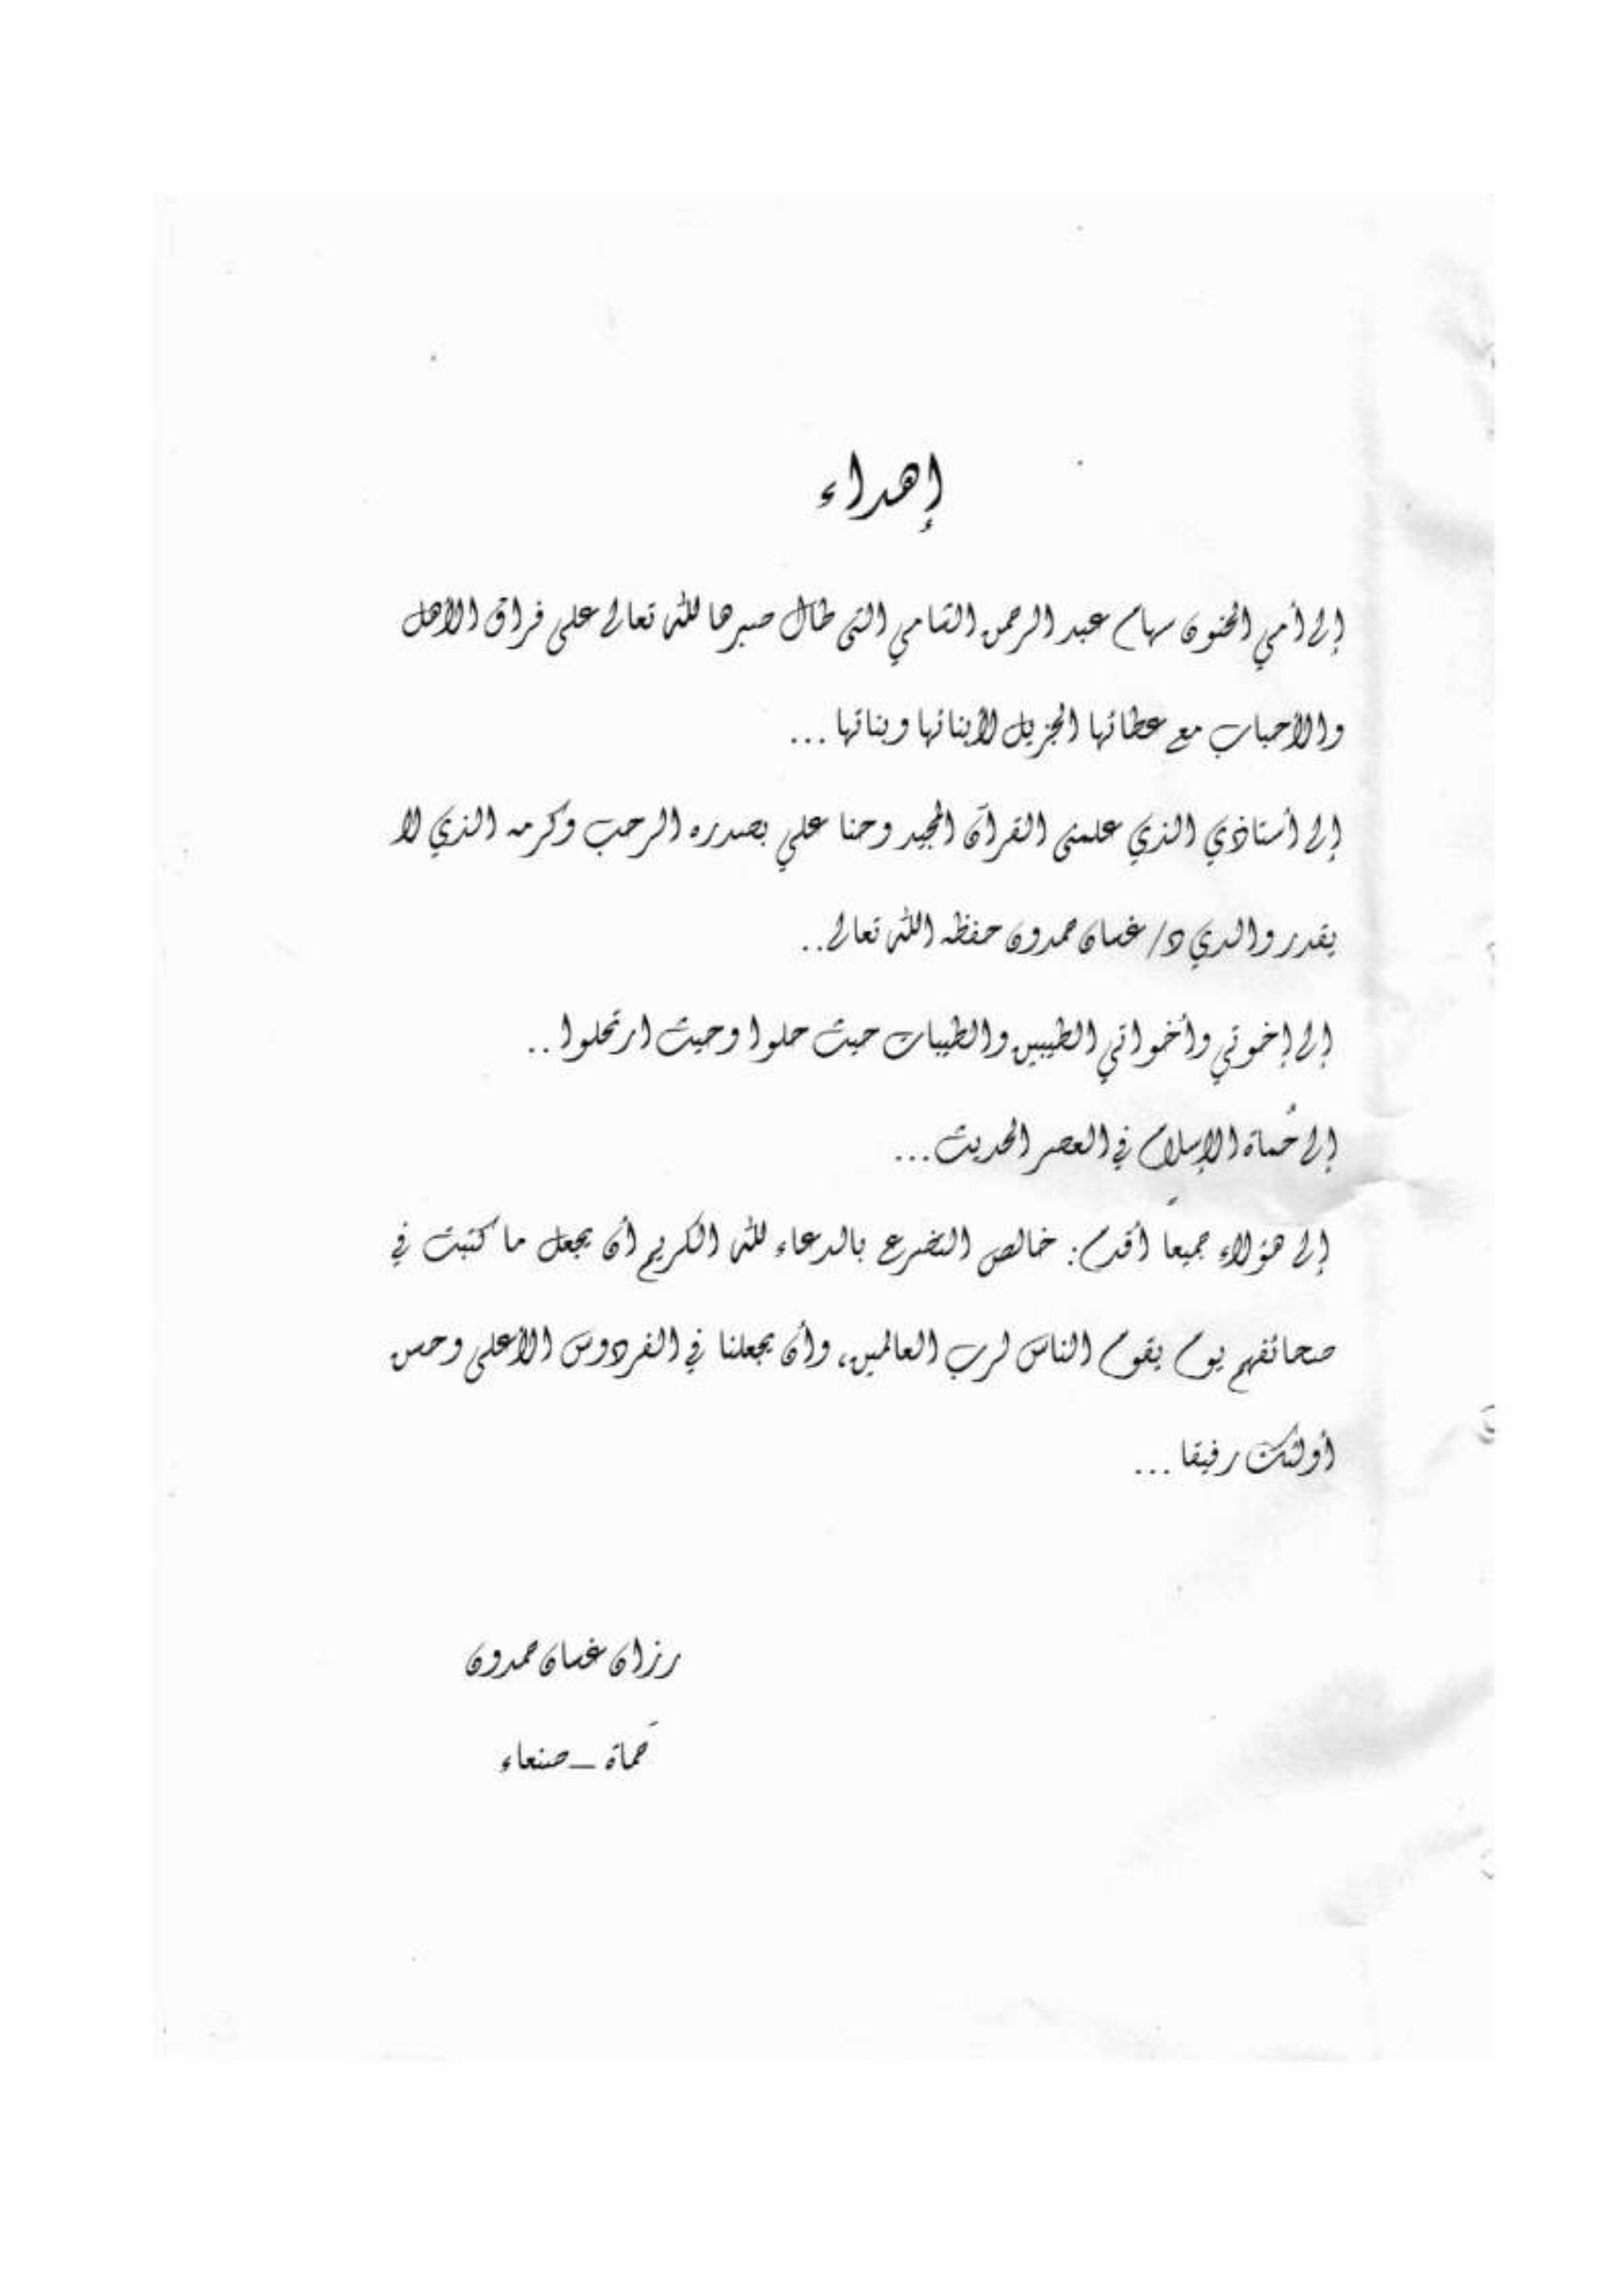 إهداء
إلى أمي الحنون سهام عبد الرحمن الشامي التي طال صبرها لله تعالى على فراق الأهل
والأحباب مع عطائها الجزيل لأبنائها وبناتها ...
إلى أستاذي الذي علمني القرآن المجيد وحنا علي بصدره الرحب وكرمه الذي لا
يقدر والدي د/ غسان حمدون حفظه الله تعالى..
إلى إخوتي وأخواتي الطيبين والطيبات حيث حلوا وحيث ارتحلوا ..
إلى حُماة الإسلام في العصر الحديث...
إلى هؤلاء جميعاً أقدم: خالص التضرع بالدعاء لله الكريم أن يجعل ما كتبت في
صحائفهم يوم يقوم الناس لرب العالمين، وأن يجعلنا في الفردوس الأعلى وحسن
أولئك رفيقا ...
رزان غسان حمدون
حَماة – صنعاء